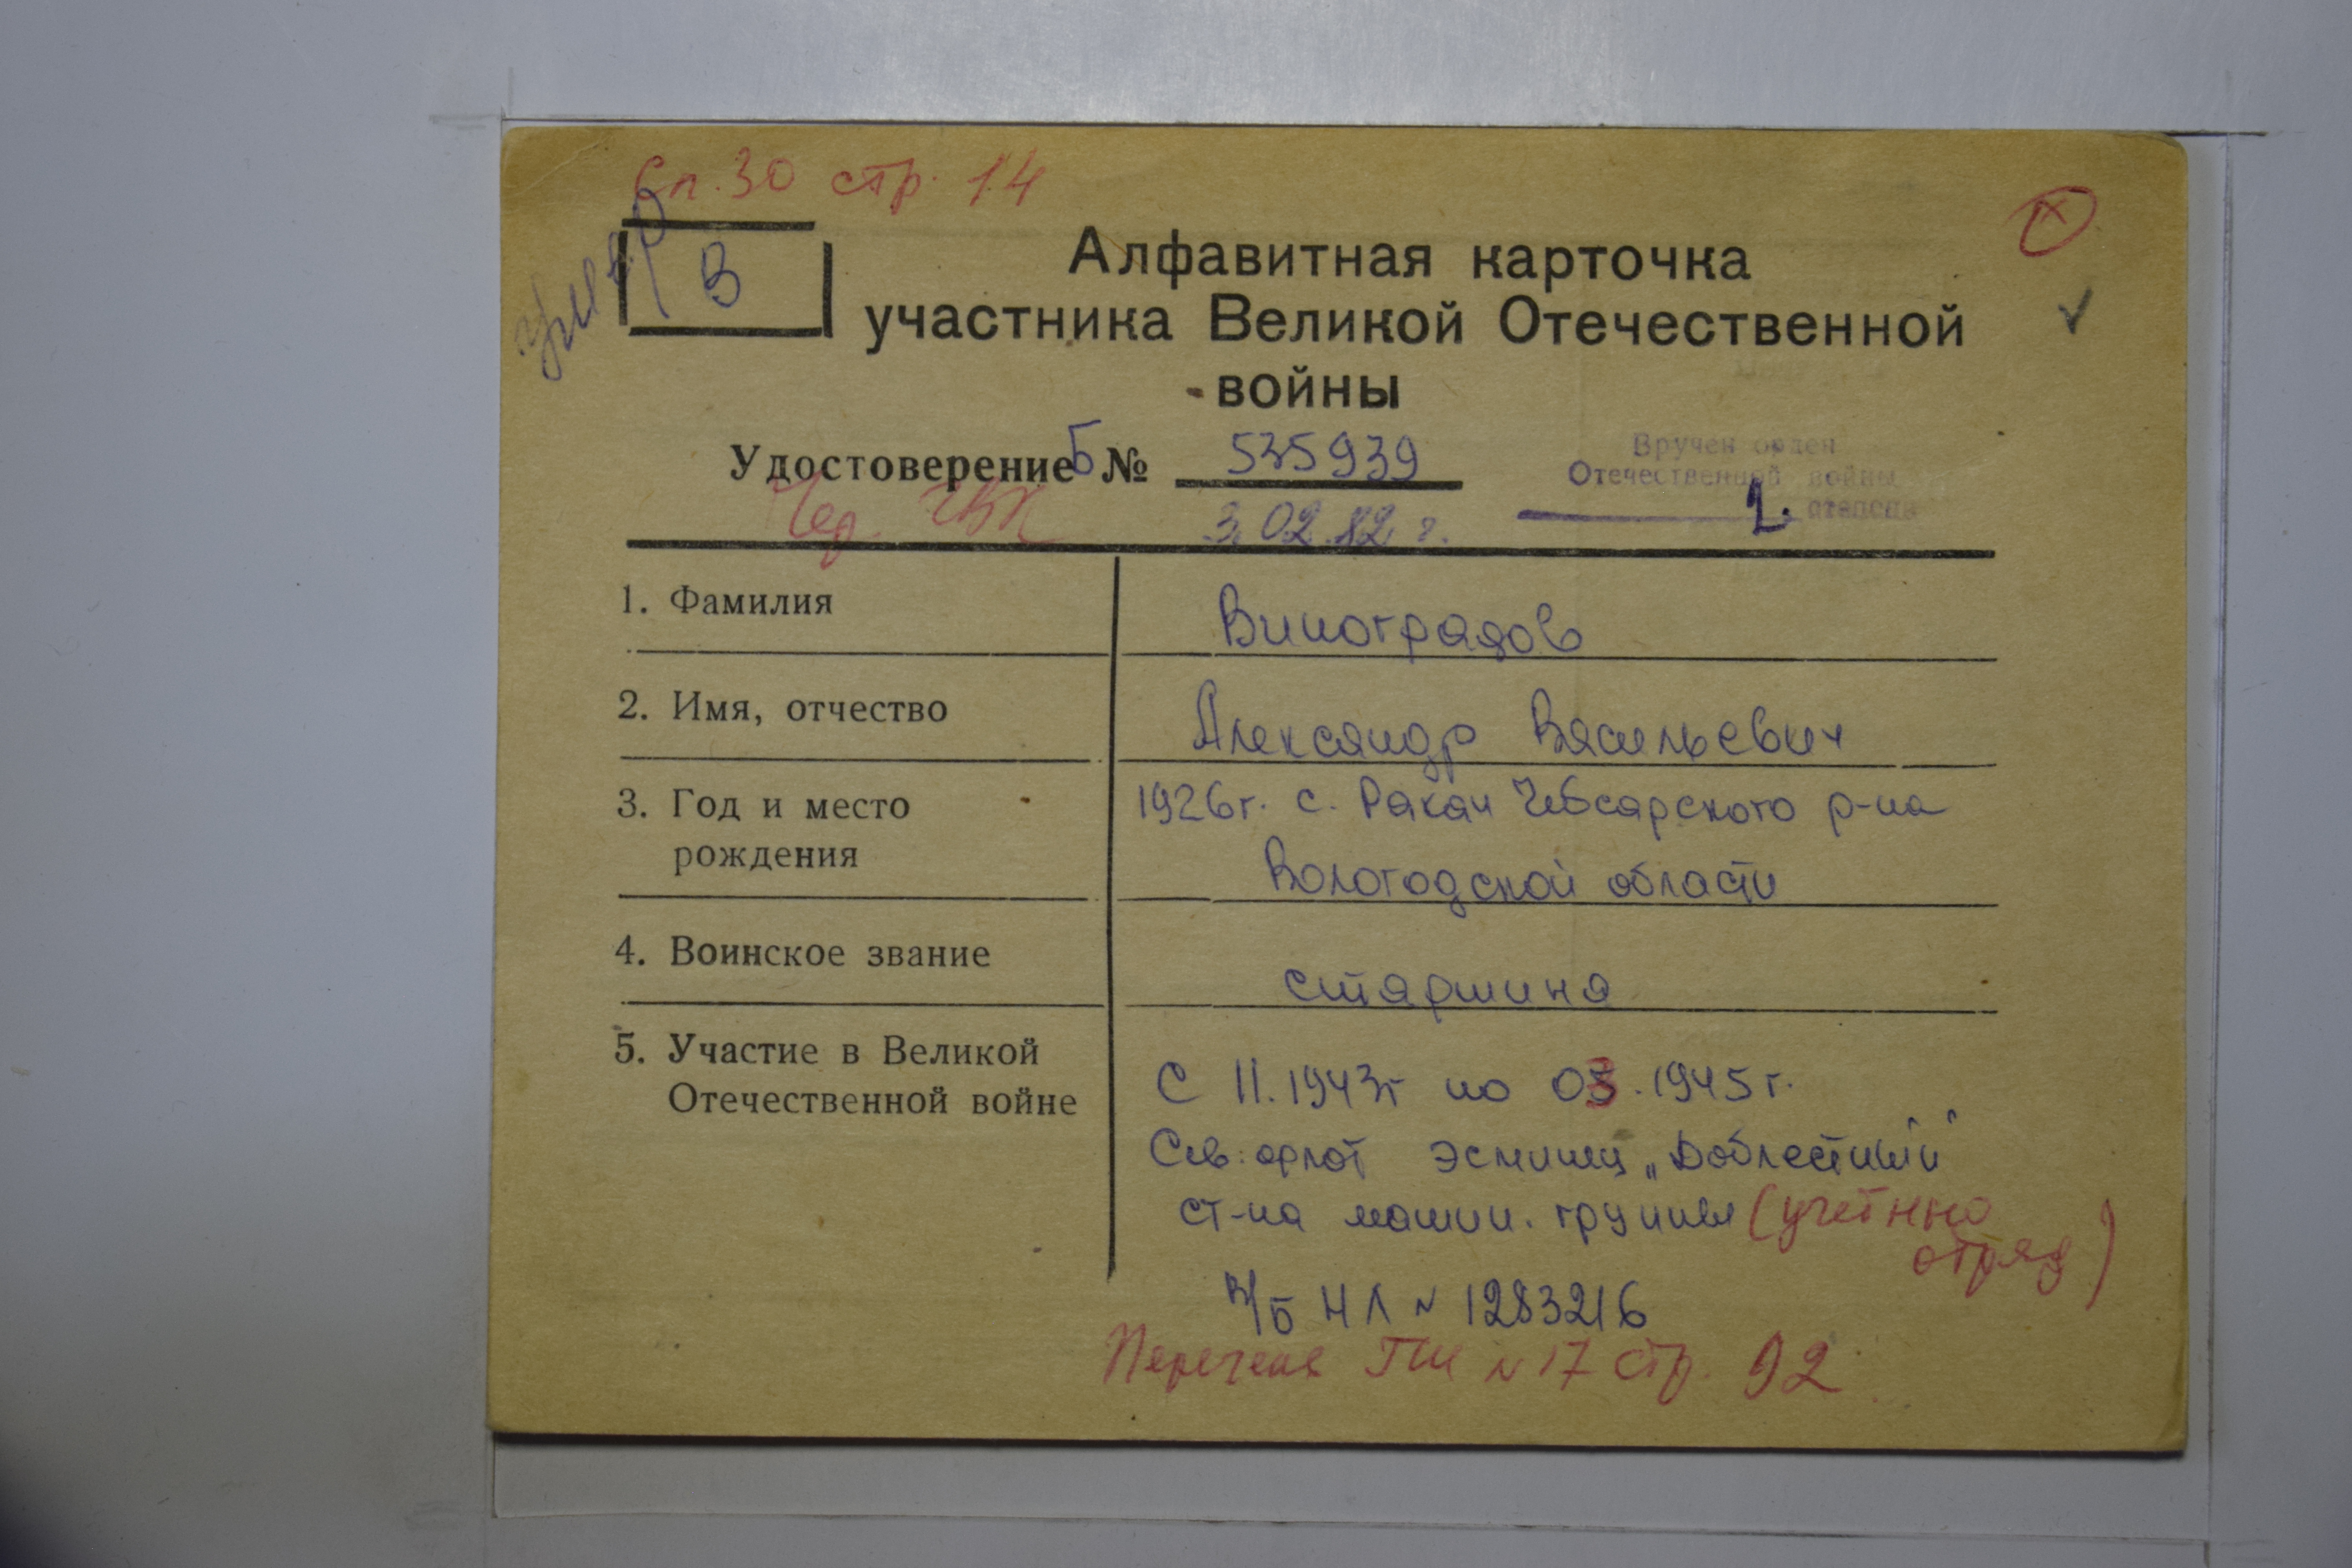 Сп. 30 стр. 14
умер
В
Алфавитная карточка
участника Великой Отечественной
войны
Удостоверение Б № 535939
3.02.82 г.
Вручен орден
Отечественной войны
2. степени
1. Фамилия Виноградов
2. Имя, отчество Александр Васильевич
3. Год и место 1926г. с. Ракан Чебсарского р-на
рождения Вологодской области
4. Воинское звание старшина
5. Участие в Великой
Отечественной войне С 11.1943г по 03.1945г.
Сев. флот эсминец „Доблестный"
ст-на машин. группы (учетный
отряд)
в/б НЛ № 1283216
Перечень ГШ № 17 стр. 92